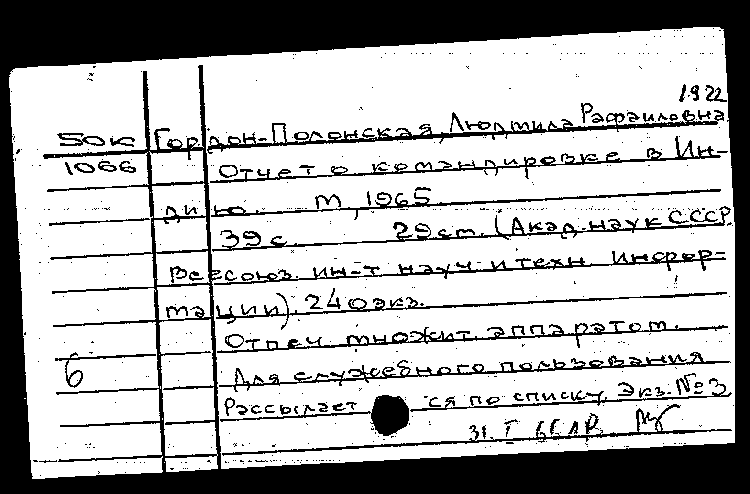 1922
50к Гордон-Полонская, Людмила Рафаиловна
1066 Отчет о командировке в Ин-
дию. М, 1965.
39 с. 29 см. (Акад. наук СССР
Всесоюз. ин-т науч. и техн. инфор-
мации). 240 экз.
Отпеч. множит. аппаратом.
6 Для служебного пользования
Рассылается по списку. Экз. №3
31. I 66